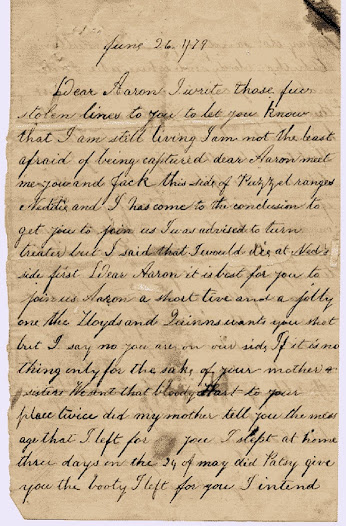 June 26. 479
Dear Aaron I write those few
stolen lines to you to let you know
that I am still living I am not the least
afraid of being captured dear Aaron meet
me you and Jack this side of Puzzel ranges
Neddie and I has come to the conclusion to
get you to join us I was advised to turn
treater but I said that I would die at Neds
side first Dear Aaron it is best for you to
join us Aaron a short live and a jolly
one the Lloyds and Quinns wants you shot
but I say no you are on our side If it is no
thing only for the sake of your mother &
sisters We sent that bloody Hart to your
place twice did my mother tell you the mess
age that I left for you I slept at home
three days on the 24 of may did Patsy give
you the booty I left for you I intend